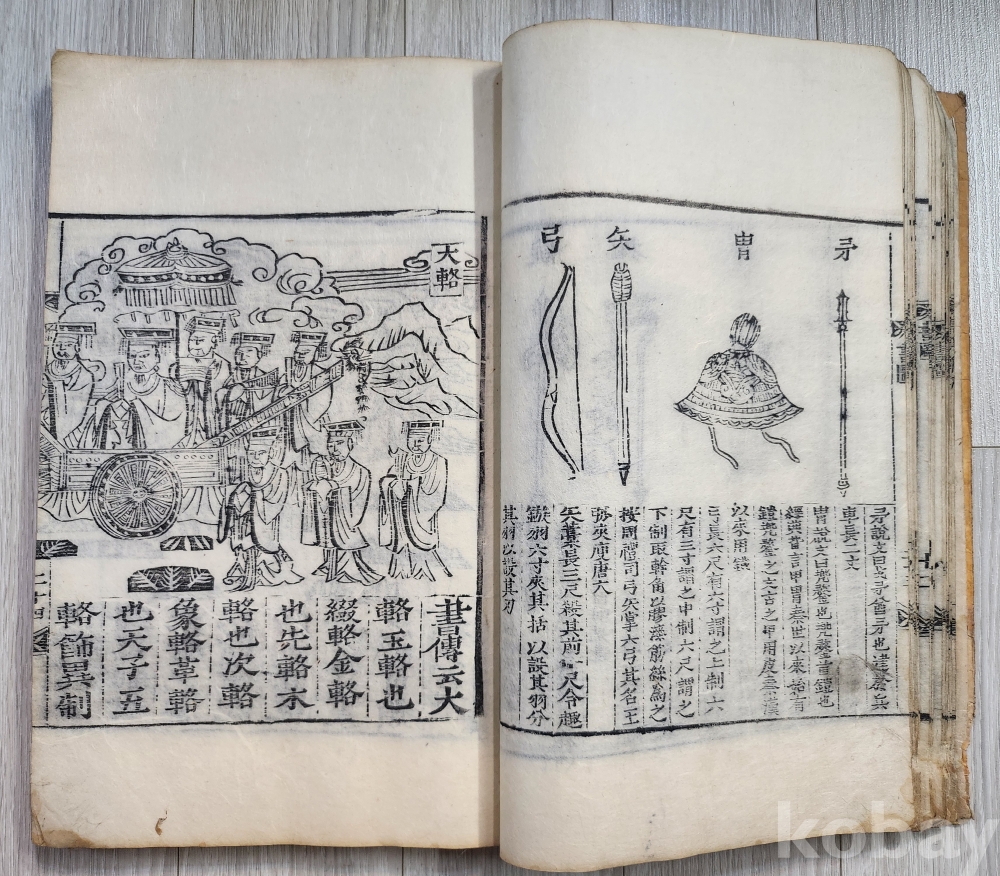 矛
冑
矢
弓
矛說文曰戈矛酋矛也建於兵
車長二丈
冑說文曰兜鍪也兜鍪首鎧也
經漢書言甲冑秦世以來始有
鎧兜鍪之文古之甲用皮至漢
以來用鐵
弓長六尺有六寸謂之上制六
尺有三寸謂之中制六尺謂之
下制取幹角以膠漆筋絲為之
按周禮司弓矢掌六弓其名王
弧夾庾唐大
矢藁長三尺殺其前一尺令趣
鏃羽六寸夾其括以設其羽分
其羽以設其刃
大輅
書傳云大
輅玉輅也
綴輅金輅
也先輅木
輅也次輅
象輅革輅
也天子五
輅飾異制
二十四
kobay